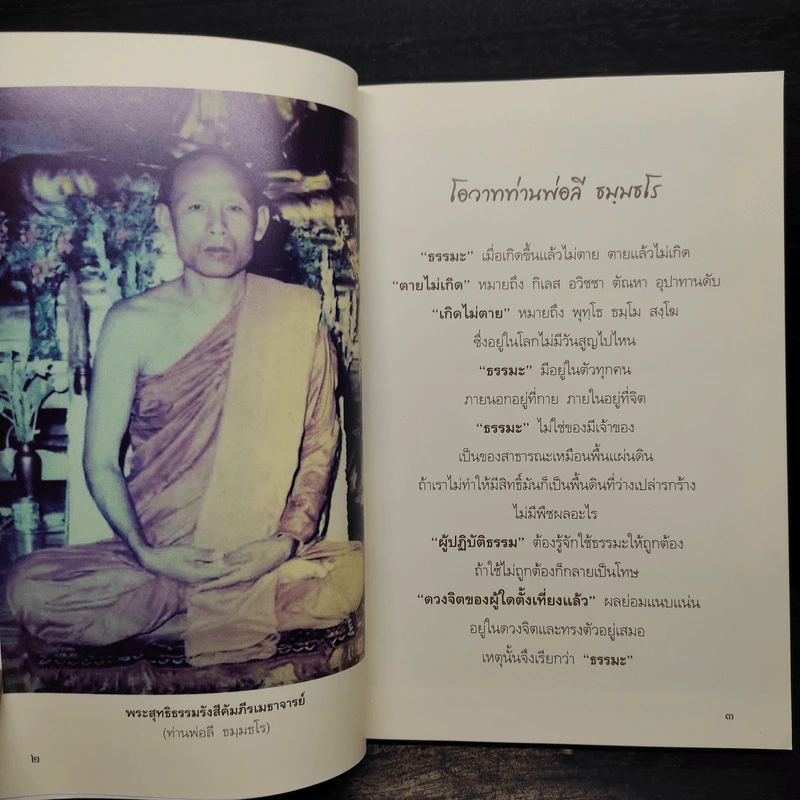 พระสุทธิธรรมรังสีคัมภีรเมธาจารย์
(ท่านพ่อลี ธมฺมธโร)
๒
โอวาทท่านพ่อลี ธมฺมธโร
“ธรรมะ” เมื่อเกิดขึ้นแล้วไม่ตาย ตายแล้วไม่เกิด
“ตายไม่เกิด” หมายถึง กิเลส อวิชชา ตัณหา อุปาทานดับ
“เกิดไม่ตาย” หมายถึง พุทฺโธ ธมฺโม สงฺโฆ
ซึ่งอยู่ในโลกไม่มีวันสูญไปไหน
“ธรรมะ” มีอยู่ในตัวทุกคน
ภายนอกอยู่ที่กาย ภายในอยู่ที่จิต
“ธรรมะ” ไม่ใช่ของมีเจ้าของ
เป็นของสาธารณะเหมือนพื้นแผ่นดิน
ถ้าเราไม่ทำให้มีสิทธิ์มันก็เป็นพื้นดินที่ว่างเปล่ารกร้าง
ไม่มีพืชผลอะไร
“ผู้ปฏิบัติธรรม” ต้องรู้จักใช้ธรรมะให้ถูกต้อง
ถ้าใช้ไม่ถูกต้องก็กลายเป็นโทษ
“ดวงจิตของผู้ใดตั้งเที่ยงแล้ว” ผลย่อมแนบแน่น
อยู่ในดวงจิตและทรงตัวอยู่เสมอ
เหตุนั้นจึงเรียกว่า “ธรรมะ”
๓